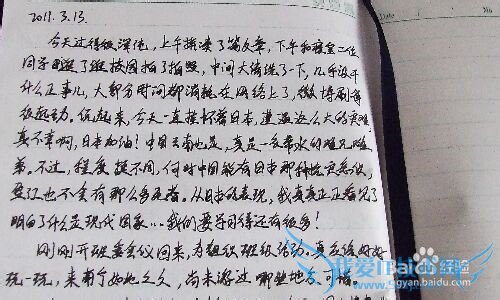 Date
No.
2011.3.13.
今天过得很深沉，上午拼凑了篇文章，下午和寝室二位
同学逛了逛校园拍了拍照，中间大清洗了一下，几乎没干
什么正事儿，大部分时间都消耗在网络上了，微博刷得
很起劲。说起来，今天一直挂怀着日本，遭遇这么大的灾难，
真不幸啊，日本加油！中国云南也是，真是一衣带水的难兄难
弟。不过，程度不同，何时中国能有日本那种抗灾意识，
盈江也不会有那么多死者。从日本的表现，我真真正正看见了
明白了什么是现代国家...我们要学习得还有很多！
刚刚开班委会议回来，为组织班级活动，真应该好好
玩一玩，来南宁如此之久，尚未游过哪些地方，可惜
Baidu 经验
jingyan.baidu.com